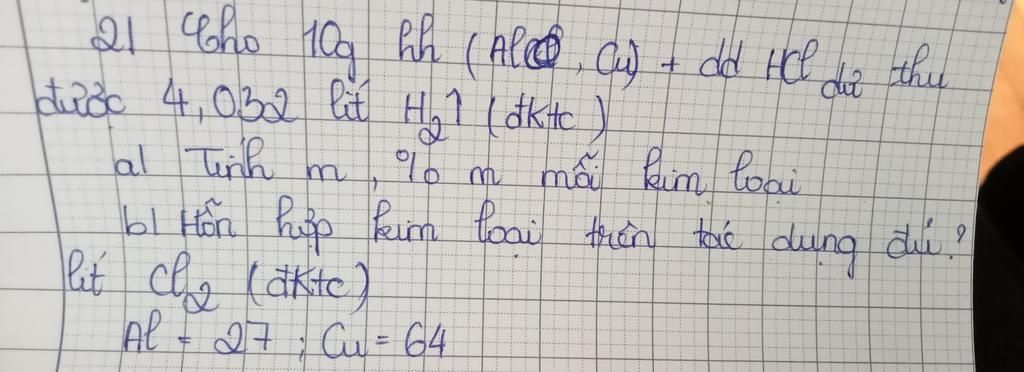 2) Cho 10g hh (Al, Cu) + dd HCl dư thu
được 4,032 lít H₂↑ (đktc)
a) Tính m, % m mỗi kim loại
b) Hỗn hợp kim loại trên tác dụng đủ ?
lít Cl₂ (đktc)
Al = 27 ; Cu = 64